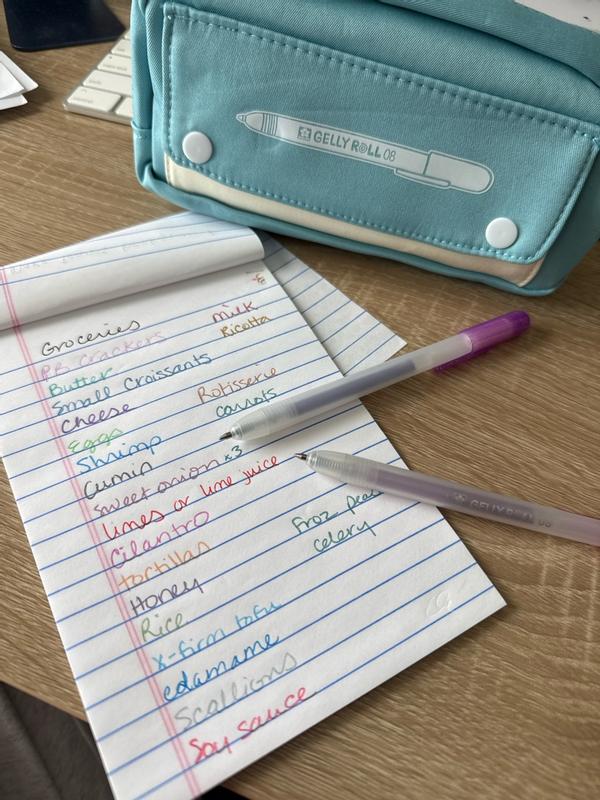 GELLY ROLL 08
Groceries
PB Crackers
Butter
Small Croissants
Cheese
Eggs
Shrimp
Cumin
Sweet onion x3
limes or lime juice
Cilantro
tortillas
Honey
Rice
x-firm tofu
edamame
Scallions
Soy sauce
milk
Ricotta
Rotisserie
carrots
Froz peas
Celery
GELLY ROLL 08